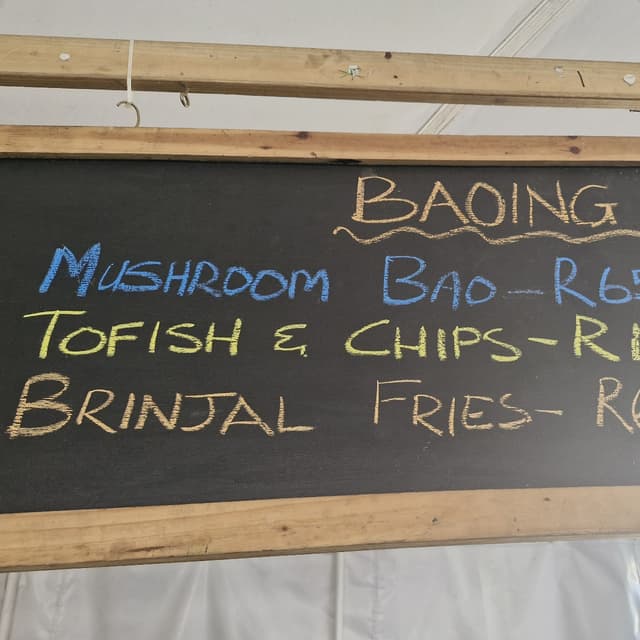 BAOING
MUSHROOM BAO - R65
TOFISH & CHIPS - R
BRINJAL FRIES - R6